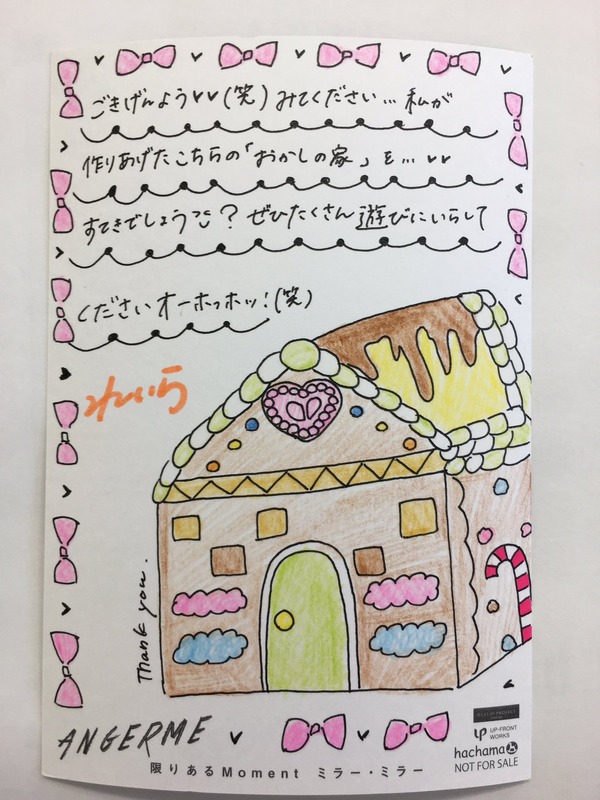 ごきげんよう♥♥(笑)みてください…私が
作りあげたこちらの「おかしの家」を…♥♥
すてきでしょう?ぜひたくさん遊びにいらして
くださいオーホッホッ!(笑)
れいら
Thank you.
ANGERME
HELLO! PROJECT
UP-FRONT
WORKS
hachama
NOT FOR SALE
限りあるMoment ミラー・ミラー